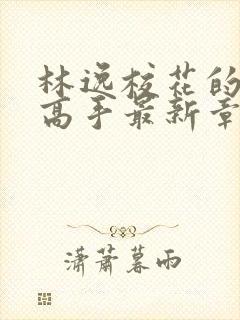 林逸校花的
高手最新章
潇萧暮雨